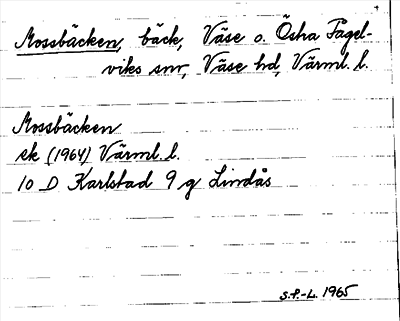 Mossbäcken, bäck, Väse o. Östra Fågel-
viks snr, Väse hd, Värml. l.
Mossbäcken
ek (1964) Värml. l.
10 D Karlstad 9 g Lindås
S.P.-L. 1965